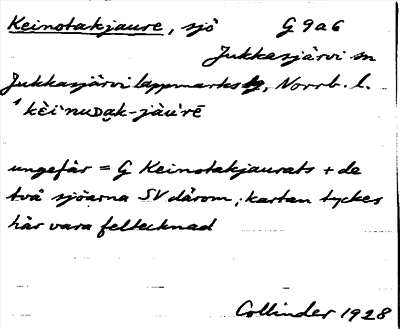 Keinotakjaure, sjö G 9 a 6
Jukkasjärvi sn
Jukkasjärvi lappmarks tg, Norrb. l.
ungefär = G Keinotakjaurats + de
två sjöarna SV därom; kartan tyckes
här vara feltecknad
Collinder 1928